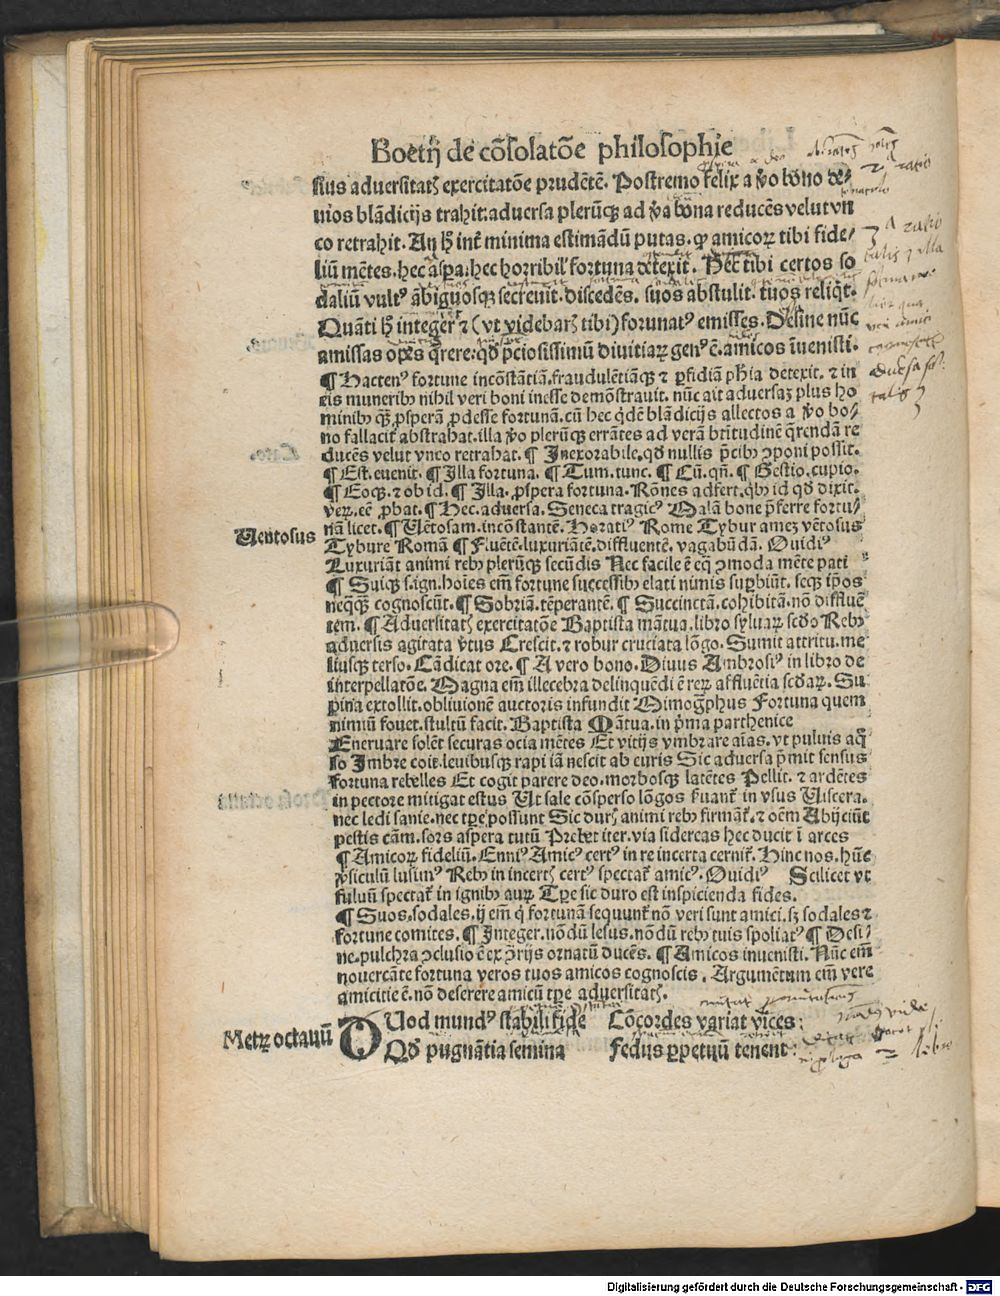 Boetij de cōsolatōe philosophie
sius aduersitatꝭ exercitatōe prudētē. Postremo felix a ꝟo bōno de⸗
uios blādicijs trahit: aduersa plerūqꝫ ad ꝟa bōna reducēs velut vn
co retrahit. An hͦ int̄ minima estimādū putas. ꝙ amicoꝝ tibi fide⸗
liū mētes. hec aspa. hec horribil' fortuna detexit. Hec tibi certos so
daliū vultꝰ ābiguosqꝫ secreuit. discedēs. suos abstulit. tuos reliq̄t.
Quāti hͦ integer ⁊ (vt videbarꝭ tibi) forunatꝰ emisses. Desine nūc
amissas opes q̄rere: qd̄ p̄ciosissimū diuitiaꝝ genꝰ ē. amicos īuenisti.
¶ Hactenꝰ fortune incōstātiā. fraudulētiāqꝫ ⁊ ꝑfidiā ph̄ia detexit. ⁊ in
eis muneribꝫ nihil veri boni inesse demōstrauit. nūc ait aduersaꝫ plus ho
minibꝫ qꝫ̄ ꝓsperā ꝓdesse fortunā. cū hec q̄dē blādicijs allectos a ꝟo bo⸗
no fallacit̄ abstrahat. illa ꝟo plerūqꝫ errātes ad verā btītudinē q̄rendā re
ducēs velut vnco retrahat. ¶ Inexorabile. qd̄ nullis p̄cibꝫ ꝯponi possit.
¶ Est. euenit. ¶ Illa fortuna. ¶ Tum. tunc. ¶ Cū. qn̄. ¶ Gestio. cupio.
¶ Eoqꝫ. ⁊ ob id. ¶ Illa. ꝓspera fortuna. Rōnes adfert. qbꝫ id qd̄ dixit.
veꝝ. eē ꝓbat. ¶ Hec. aduersa. Seneca tragicꝰ Malā bone p̄ferre fortu⸗
nā licet. ¶ Uētosam. incōstantē. Horatiꝰ Rome Tybur ameꝫ vētosus
Uentosus
Tybure Romā ¶ Fluētē. luxuriātē. diffluentē. vagabūdā. Ouidiꝰ
Luxuriāt animi rebꝫ plerūqꝫ secūdis Nec facile ē eq̄ ꝯmoda mēte pati
¶ Suiqꝫ s. ign. hoīes em̄ fortune successibꝫ elati nimis suꝑbiūt. seqꝫ ip̄os
neqꝫq̄ cognoscūt. ¶ Sobriā. tēperantē. ¶ Succinctā. cohibitā. nō difflue
tem. ¶ Aduersitatꝭ exercitatōe Baptista mātua. libro syluaꝝ scd̄o Rebꝫ
aduersis agitata ꝟtus Crescit. ⁊ robur cruciata lōgo. Sumit attritu. me
liusqꝫ terso. Cādicat ore. ¶ A vero bono. Diuus Ambrosiꝰ in libro de
interpellatōe. Magna em̄ illecebra delinquēdi ē reꝝ affluētia scd̄aꝝ. Su
pina extollit. obliuionē auctoris infundit Mimogͣphus Fortuna quem
nimiū fouet. stultū facit. Baptista Mātua. in p̄ma parthenice
Eneruare solēt securas ocia mētes Et vitijs vmbrare aīas. vt puluis aq̄
so Imbre coit. leuibusqꝫ rapi iā nescit ab euris Sic aduersa p̄mit sensus
fortuna rebelles Et cogit parere deo. morbosqꝫ latētes Pellit. ⁊ ardētes
in pectore mitigat estus Ut sale cōsperso lōgos ẜuant̄ in vsus Uiscera.
nec ledi sanie. nec tꝑe possunt Sic durꝭ animi rebꝫ firmāt̄. ⁊ oēm Abijciūt
pestis cām. sors aspera tutū Prebet iter. via sidereas hec ducit ī arces
¶ Amicoꝝ fideliū. Enniꝰ Amicꝰ certꝰ in re incerta cernit̄. Hinc nos. hūc
ꝟsiculū lusimꝰ Rebꝫ in incertꝭ certꝰ spectat̄ amicꝰ. Ouidiꝰ Scilicet vt
fuluū spectat̄ in ignibꝫ auꝝ Tꝑe sic duro est inspicienda fides.
¶ Suos. sodales. ij em̄ q̄ fortunā sequunt̄ nō veri sunt amici. sꝫ sodales ⁊
fortune comites. ¶ Integer. nōdū lesus. nōdū rebꝫ tuis spoliatꝰ ¶ Desi⸗
ne. pulchra ꝯclusio ē ex p̄rijs ornatū ducēs. ¶ Amicos inuenisti. Nūc em̄
nouercāte fortuna veros tuos amicos cognoscis. Argumētum em̄ vere
amicitie ē. nō deserere amicū tꝑe aduersitatꝭ.
Metꝝ octauū
QUod mundꝰ stabili fide Cōcordes variat vices:
Qd̄ pugnātia semina Fedus ꝑpetuū tenent:
Digitalisierung gefördert durch die Deutsche Forschungsgemeinschaft - DFG